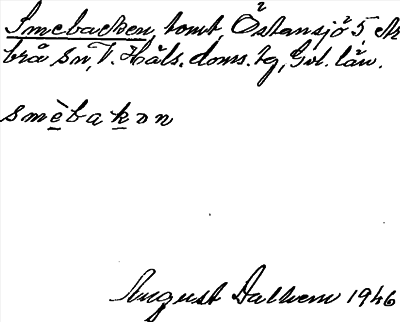 Smebacken, tomt, Östansjö 5, Ar
brå sn, V. Häls. doms. tg, Gvl. län.
smèbakɒn
August Dalhem 1946